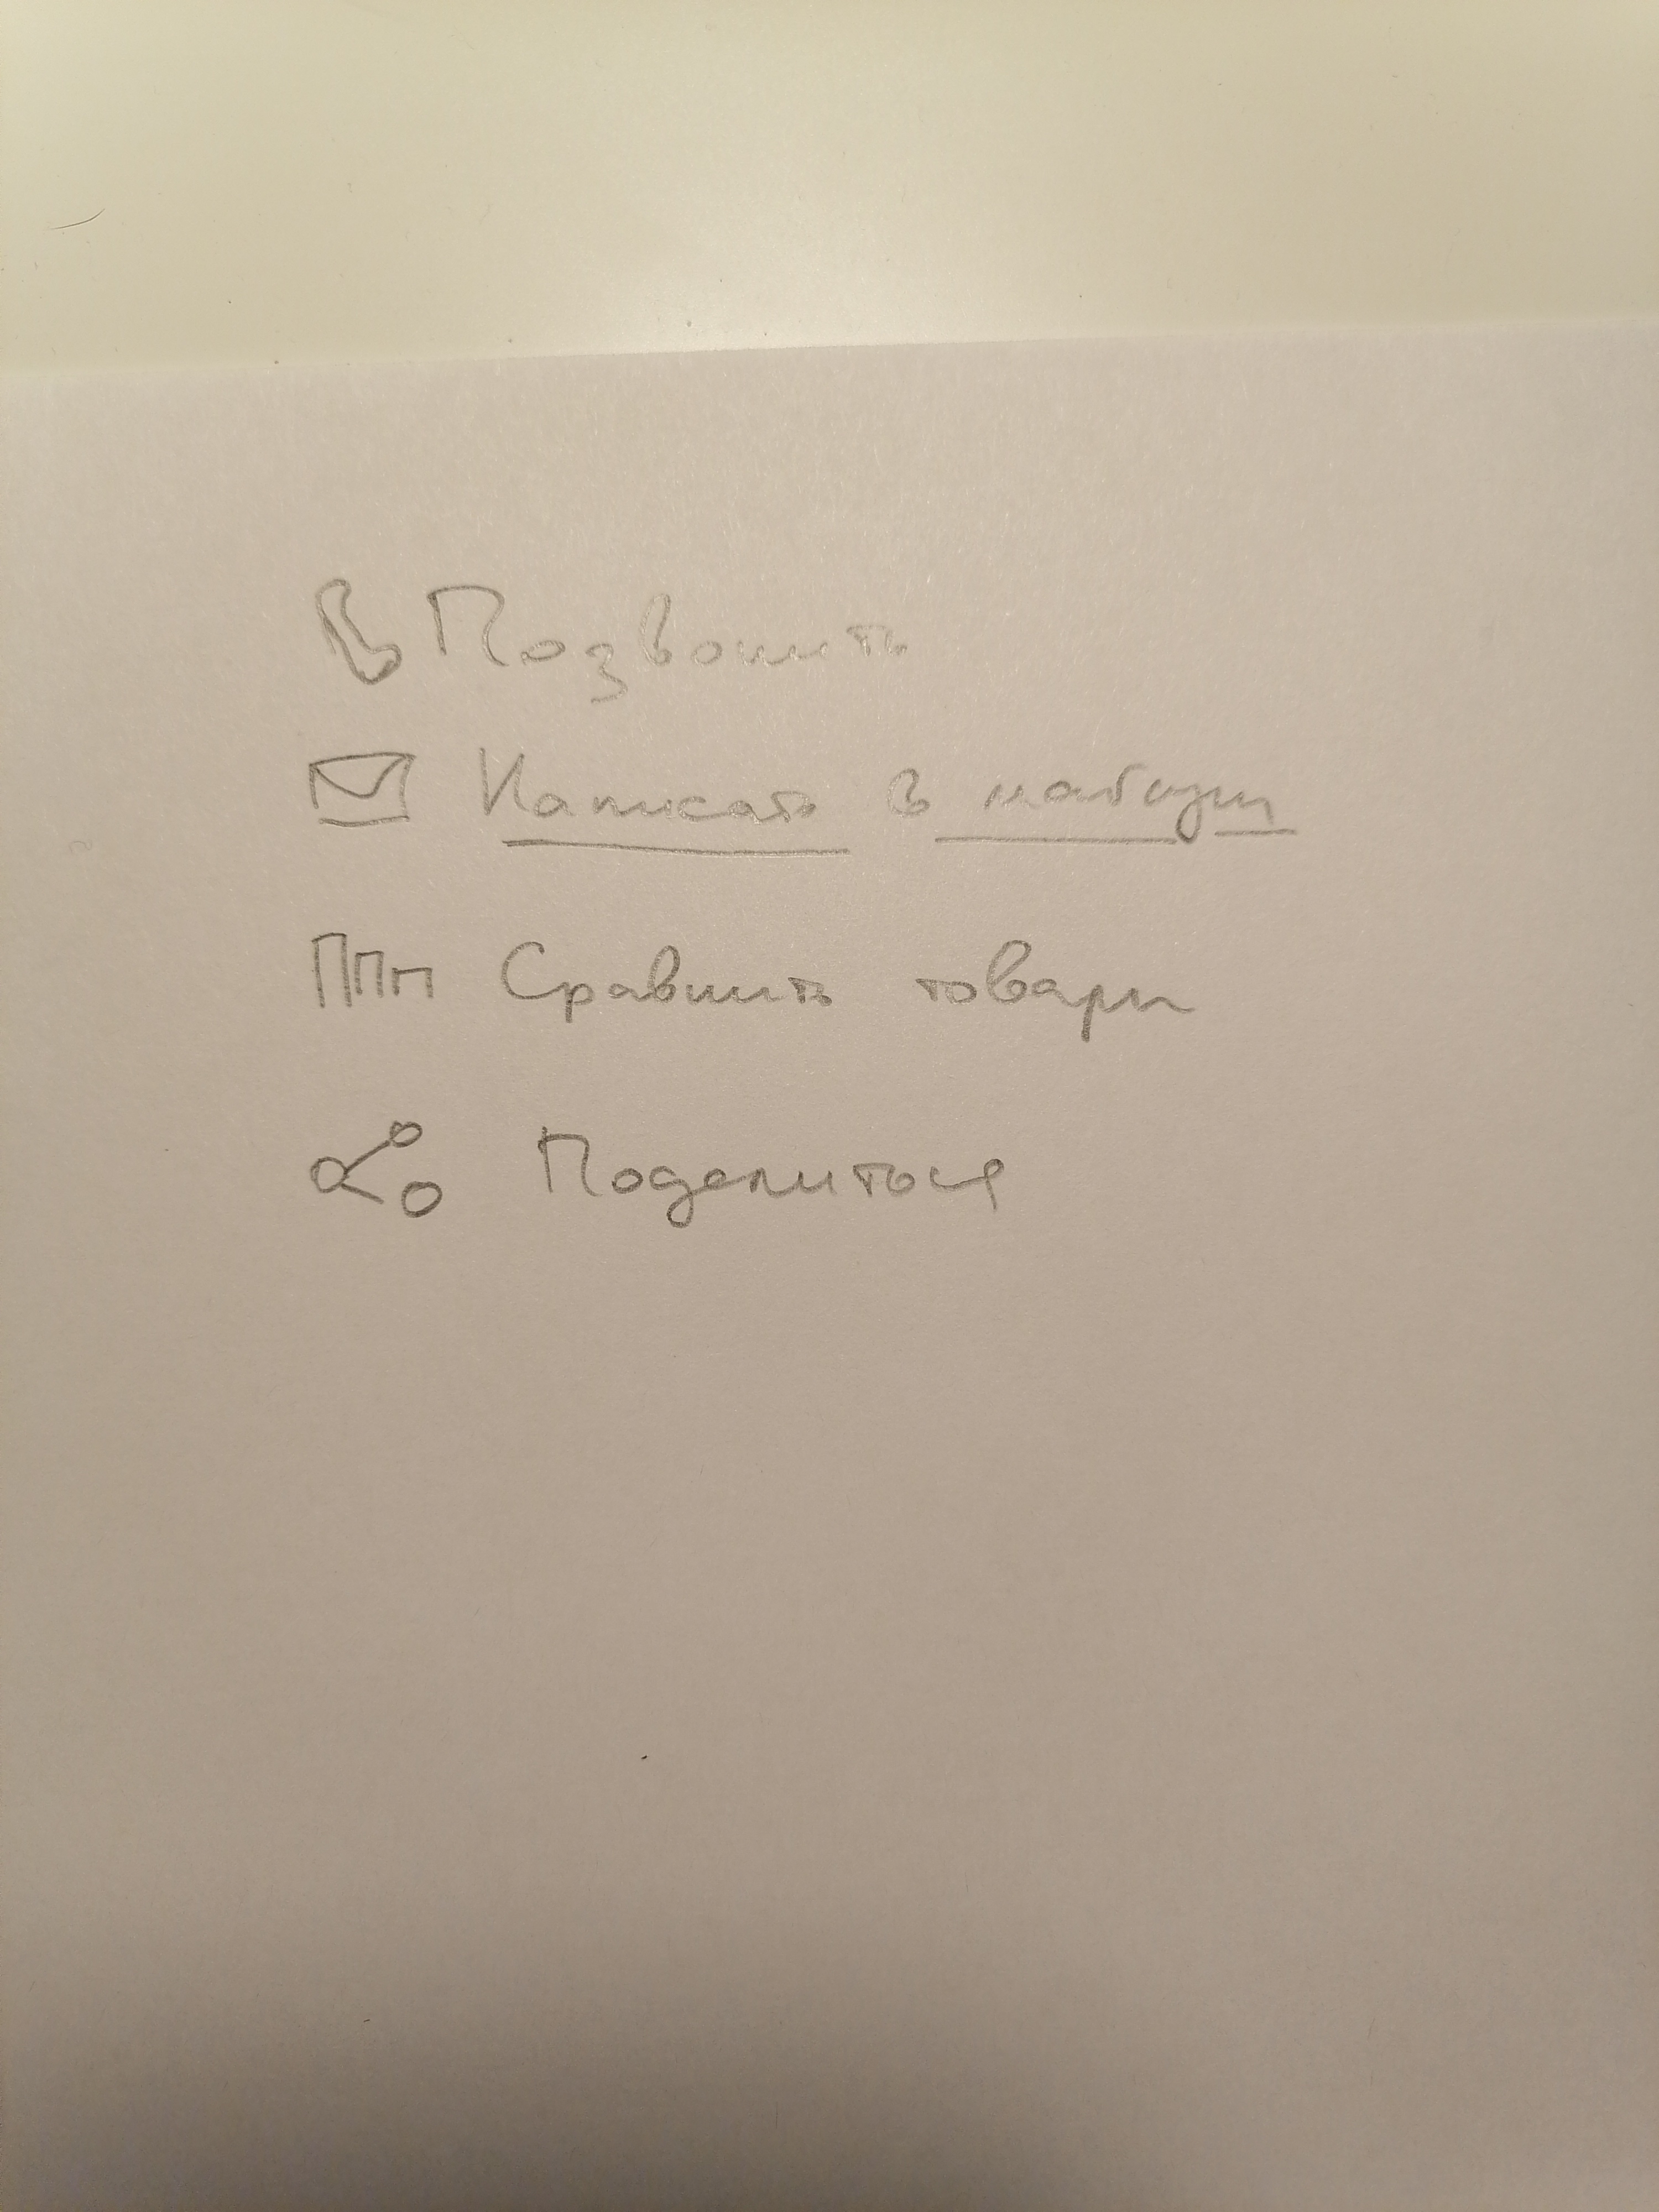 Позвонить
Написать в
Сравнить товары
Поделиться